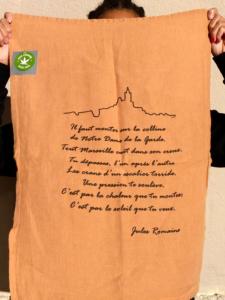 Il faut monter sur la colline
de Notre Dame de la Garde.
Tout Marseille met dans son creux.
Tu dépasses, l'un après l'autre
Les crans d'un escalier torride.
Une pression te soulève.
C'est par la chaleur que tu montes;
C'est par le soleil que tu veux.
Jules Romains